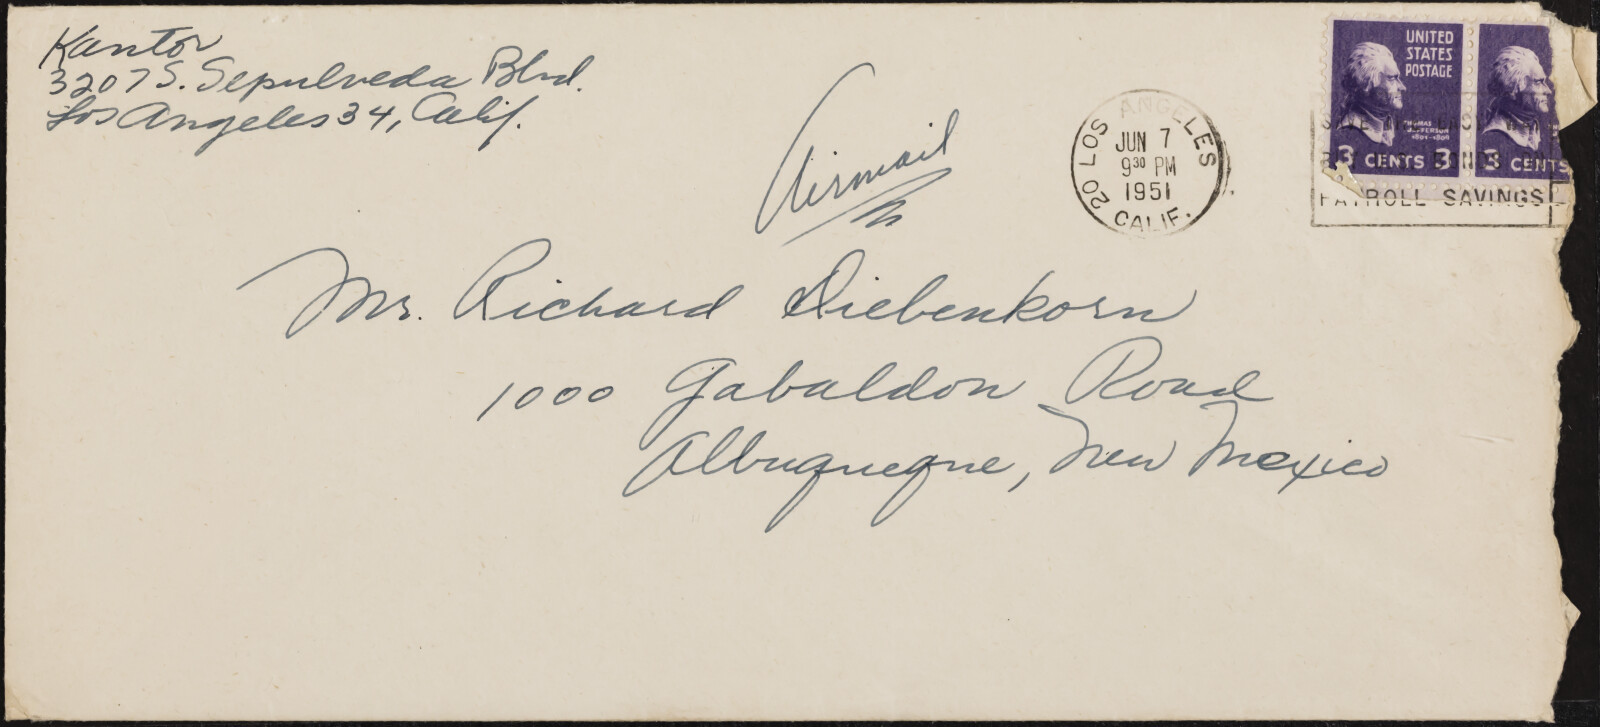 Kantor
3207 S. Sepulveda Blvd.
Los Angeles 34, Calif.
Airmail
LOS ANGELES
20
CALIF.
JUN 7
9 30 PM
1951
UNITED
STATES
POSTAGE
THOMAS
JEFFERSON
3 CENTS 3
3 CENTS
PAYROLL SAVINGS
Mr. Richard Diebenkorn
1000 Gabaldon Road
Albuquerque, New Mexico